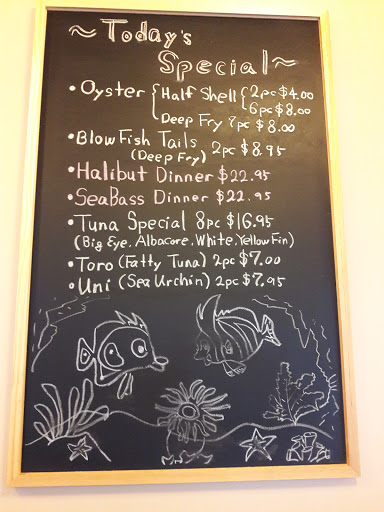 ~Today's
Special~
• Oyster { Half Shell { 2pc $4.00
6pc $8.00
Deep Fry 7pc $8.00
• Blow Fish Tails 2pc $8.95
(Deep Fry)
• Halibut Dinner $22.95
• SeaBass Dinner $22.95
• Tuna Special 8pc $16.95
(Big Eye, Albacore, White, Yellow Fin)
• Toro (Fatty Tuna) 2pc $7.00
• Uni (Sea Urchin) 2pc $7.95